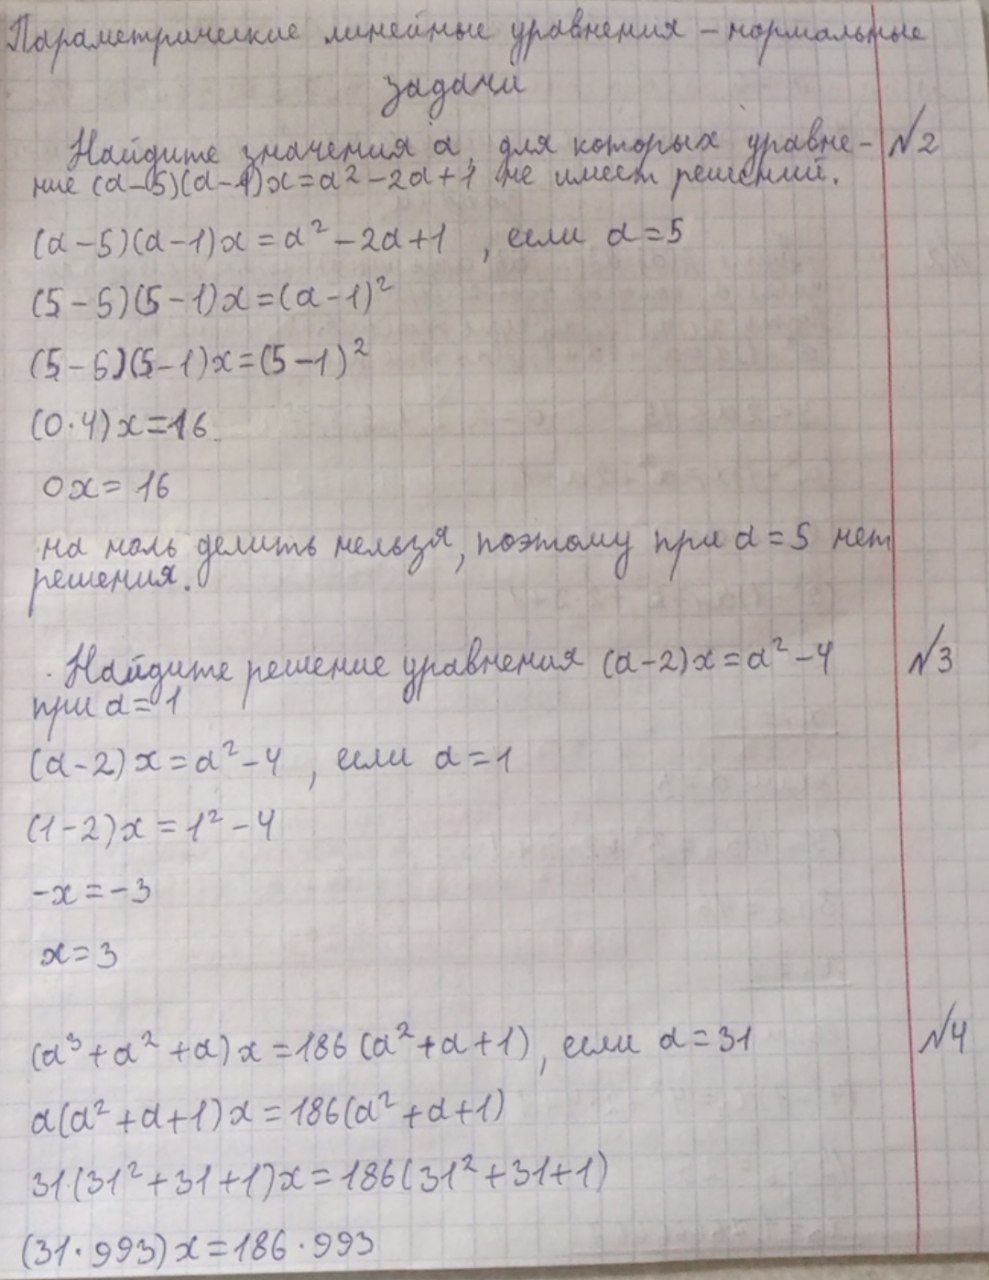 Параметрические линейные уравнения – нормальные
задачи
Найдите значения a, для которых уравне- №2
ние (a-5)(a-1)x=a²-2a+1 не имеет решений.
(a-5)(a-1)x=a²-2a+1, если a=5
(5-5)(5-1)x=(a-1)²
(5-5)(5-1)x=(5-1)²
(0·4)x=16
0x=16
на ноль делить нельзя, поэтому при a=5 нет
решения.
Найдите решение уравнения (a-2)x=a²-4 №3
при a=1
(a-2)x=a²-4, если a=1
(1-2)x=1²-4
-x=-3
x=3
(a³+a²+a)x=186(a²+a+1), если a=31 №4
a(a²+a+1)x=186(a²+a+1)
31(31²+31+1)x=186(31²+31+1)
(31·993)x=186·993